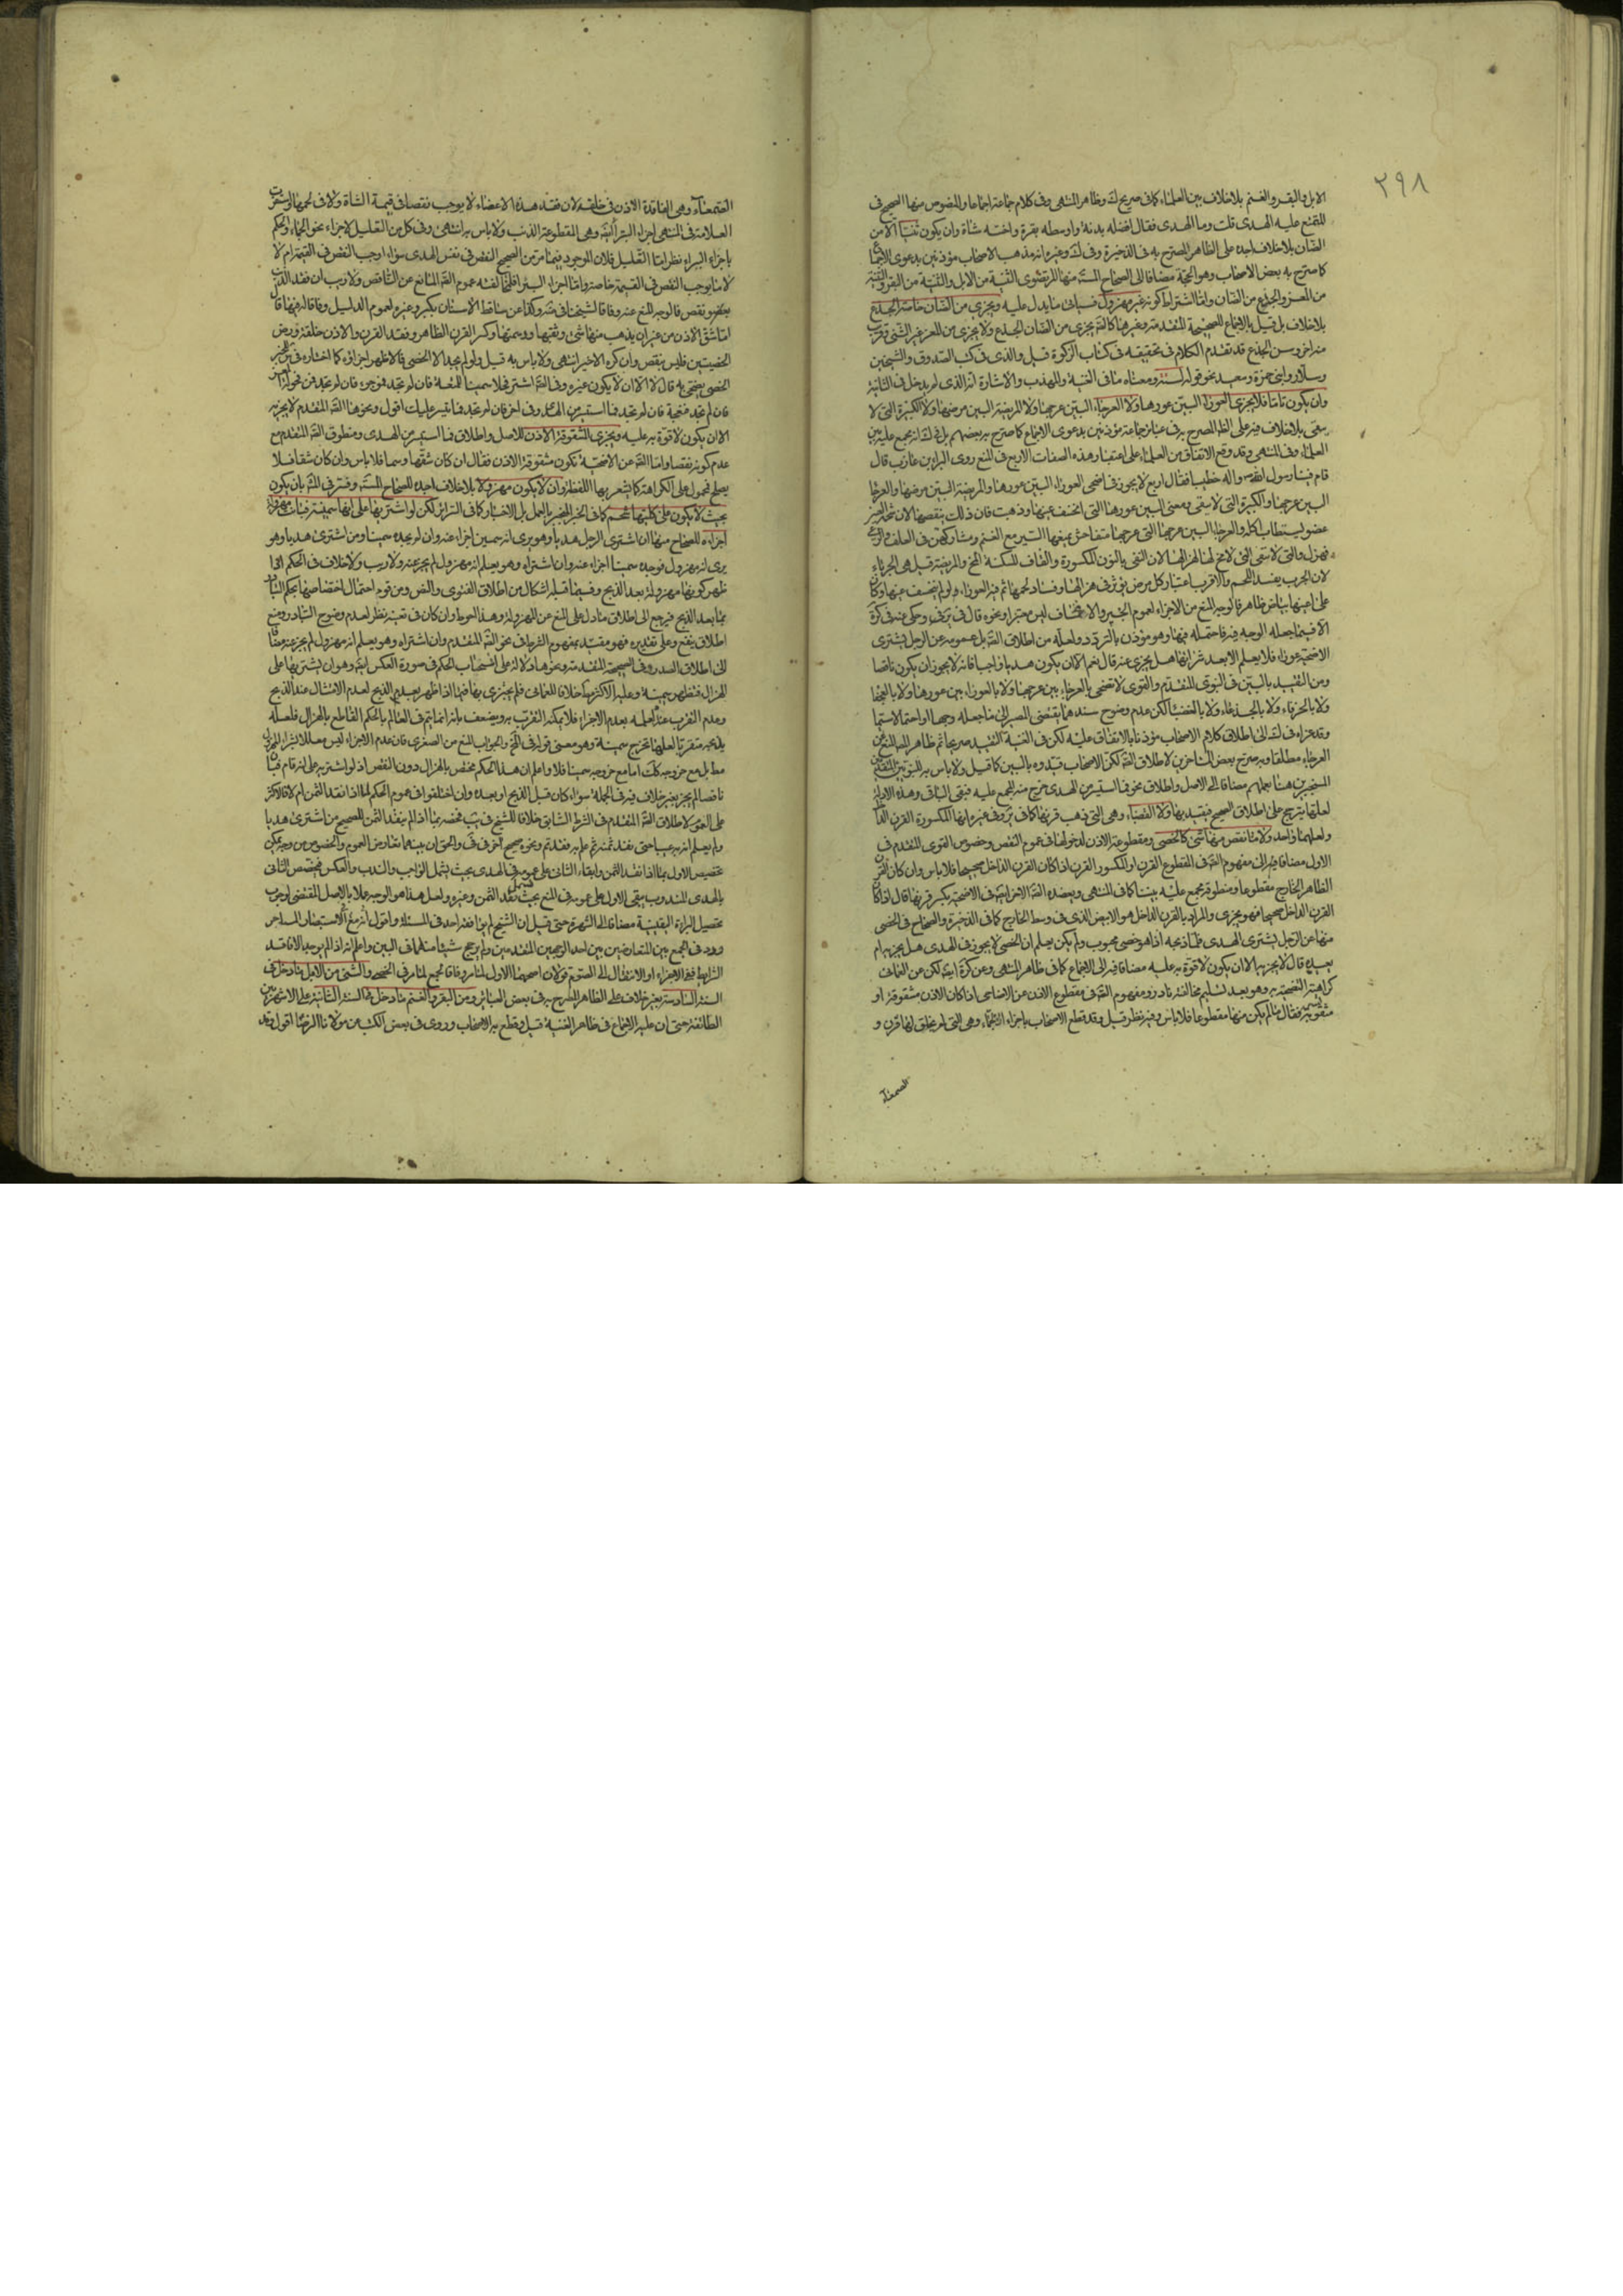 ٢٩٨
الابل والبقر والغنم بلا خلاف بين العلماء كما في صريح ك وظاهر المنتهى وفي كلام جماعة اجماعا والنصوص منها الصحيح في
المتمتع عليه الهدى قلت وما الهدى فقال افضله بدنة واوسطه بقرة واخسه شاة وان يكون ثنيا الا من
الضان بلا خلاف اجده على الظاهر المصرح به في الذخيرة وفي ك وغيره انه مذهب الاصحاب مؤذنين بدعوى الاجماع
كما صرح به بعض الاصحاب وهو الحجة مضافا الى الصحاح المستفيضة منها للمرتضوى الثنية من الابل والثنية من البقر والثنية
من المعز والجذع من الضان واما اشتراط كونه غير مهزول فسياتي ما يدل عليه ويجزى من الضان خاصة الجذع
بلا خلاف بل قيل بالاجماع للصحيحة المتقدمة وغيرها كالصحيح يجزى من الضان الجذع ولا يجزى من المعز غير الثنى وقريب
منه اخر وسن الجذع قد تقدم الكلام في تحقيقه في كتاب الزكوة قيل والذى في كتب الصدوق والشيخين
وسلار وابنى حمزة وسعيد نحو قوله لسنة ومعناه ما في الغنية والمهذب والاشارة انه الذى لم يدخل في الثانية
وان يكون تاما فلا يجزى العوراء البين عورها ولا العرجاء البين عرجها ولا المريضة البين مرضها ولا الكبيرة التى لا
تنقى بلا خلاف فيه على الظاهر المصرح به في عبائر جماعة مؤذنين بدعوى الاجماع كما صرح به بعضهم بل في ك انه مجمع عليه بين
العلماء وفي المنتهى وقد وقع الاتفاق من العلماء على اعتبار هذه الصفات الاربع في المنع روى البراء بن عازب قال
قام فينا رسول الله ص واله خطيبا فقال اربع لا يجوز في اضحى العوراء البين عورها والمريضة البين مرضها والعرجاء
البين عرجها والكبيرة التى لا تنقى ومعنى البين عورها التى انخسف عينها وذهبت فان ذلك ينقصها لان شحمة العين
عضو يستطاب اكله والعرجاء البين عرجها التى عرجها متفاحش يمنعها السير مع الغنم ومشاركتهن في العلف والرعى
فتهزل والتى لا تنقى التى لا مخ لها لهزالها لان النقى بالنون المكسورة والقاف المسكنة المخ والمريضة قيل هى الجرباء
لان الجرب يفسد اللحم والاقرب اعتبار كل مرض يؤثر في هزالها وفساد لحمها ثم فيه العوراء ولو لم ينخسف عينها وكان
على عينها بياض ظاهر فالوجه المنع من الاجزاء لعموم الخبر والانخساف ليس معتبرا ونحوه قال في ير وفي وحكى عنه في كرة
الا فيما جعله الوجه فيه فاحتمله فيها وهو مؤذن بالتردد ولعله من اطلاق النص بل عمومه عن الرجل يشترى
الاضحية عوراء فلا يعلم الا بعد شرائها هل يجزى عنه قال نعم الا ان يكون هديا واجبا فانه لا يجوز ان يكون ناقصا
ومن التقييد بالبين في النبوى المتقدم والقوى لا تضحى بالعرجاء بين عرجها ولا بالعوراء بين عورها ولا بالعجفاء
ولا بالخرقاء ولا بالجذعاء ولا بالعضباء لكن عدم وضوح سندهما يقتضى المصير الى ما جعله وجها او احتمله لا سيما
وقد عزاه في ك الى اطلاق كلام الاصحاب مؤذنا بالاتفاق عليه لكن في الغنية التقييد صريحا ثم ظاهر المنع من
العرجاء مطلقا وبه صرح بعض المتاخرين لاطلاق النص لكن الاصحاب قيدوه بالبين كما قيل ولا باس به للنبويين المتقدمين
المنجبرين هنا بعملهم مضافا الى الاصل واطلاق نحو فما استيسر من الهدى خرج منه المجمع عليه فبقى الباقى وهذه الادلة
لعلها يترجح على اطلاق الصحيح فيقيد بها ولا العضباء وهى التى ذهب قرنها كما في ير وفي غيره انها المكسورة القرن الداخل
ولعلهما واحد ولا ما نقص منها شئ كالخصى ومقطوعة الاذن لدخولها في عموم النقص وخصوص القوى المتقدم في
الاول مضافا فيه الى مفهوم النص في المقطوع القرن او المكسور القرن اذا كان القرن الداخل صحيحا فلا باس وان كان القرن
الظاهر الخارج مقطوعا ومنطوقه مجمع عليه بيننا كما في المنتهى ويعضده النص الاخر ايضا في الاضحية يكسر قرنها قال اذا كان
القرن الداخل صحيحا فهو يجزى والمراد بالقرن الداخل هو الابيض الذى في وسط الخارج كما في الذخيرة والصحاح في الخصى
منها عن الرجل يشترى الهدى فلما ذبحه اذا هو خصى مجبوب ولم يكن يعلم ان الخصى لا يجوز في الهدى هل يجزيه ام
يعيده قال لا يجزيه الا ان يكون لا قوة به عليه مضافا فيه الى الاجماع كما في ظاهر المنتهى وعن كرة ايضا لكن عن العمانى
كراهية التضحية به وهو بعيد تسليم مخالفته نادر ومفهوم النص في مقطوع الاذن عن الاضاحى اذا كان الاذن مشقوقة او
مثقوبة بسمة فقال ما لم يكن منها مقطوعا فلا باس وفيه نظر قيل وقد قطع الاصحاب باجزاء الجماء وهى التى لم يخلق لها قرن و
الصمعاء
الصمعاء وهى الفاقدة الاذن في خلقة لان فقد هذه الاعضاء لا يوجب نقصا في قيمة الشاة ولا في لحمها واستقرب
العلامة في المنتهى اجزاء البتراء ايضا وهى المقطوعة الذنب ولا باس به انتهى وفي كل من التعليل لاجزاء نحو الجماء والحكم
باجزاء البتراء نظر اما التعليل فلان الموجود فيما مر من الصحيح النقص في نفس الهدى سواء اوجب النقص في القيمة ام لا
لا ما يوجب النقص في القيمة خاصة واما اجزاء البتراء فلمخالفته عموم النص المانع عن الناقص ولا ريب ان فقد الذنب
بعضو نقص فالوجه المنع عنه وفاقا للشهيد في س وكذا عن ساقط الاسنان بكبر وغيره لعموم الدليل وفاقا له فيهما قال
اما شق الاذن من غير ان يذهب منها شئ وثقبها ووسمها وكسر القرن الظاهر وفقد القرن والاذن خلقة ورض
الخصيتين فليس بنقص وان كره الاخير انتهى ولا باس به قيل ولو لم يجد الا الخصى فالاظهر اجزاؤه كما اختاره في س لخبر
الخصى يضحى به قال لا الا ان لا يكون غيره وفي النص اشتر فحلا سمينا للمتعة فان لم تجد فموجوء فان لم تجد فمن فحولة المعز
فان لم تجد فنعجة فان لم تجد فما استيسر من الهدى وفي اخر فان لم تجد فما تيسر عليك اقول ونحوهما النص المتقدم لا يجزيه
الا ان يكون لا قوة به عليه ويجزى المشقوقة الاذن للاصل واطلاق فما استيسر من الهدى ومنطوق النص المتقدم مع
عدم كونه نقصا واما النص عن الاضحية تكون مشقوقة الاذن فقال ان كان شقها وسما فلا باس وان كان شقا فلا
يصلح فمحمول على الكراهة كما يشعر بها اللفظة وان لا يكون مهزولا بلا خلاف اجده للصحاح المستفيضة وفسر في المتن بان يكون
بحيث لا يكون على كليتيها شحم كما في الخبر المنجبر بالعمل بل الاعتبار كما في السرائر لكن لو اشتريها على انها سمينة فبانت مهزولة
اجزاه للصحاح منها ان اشترى الرجل هديا وهو يرى انه سمين اجزاء عنه وان لم يجده سمينا ومن اشترى هديا وهو
يرى انه مهزول فوجده سمينا اجزاء عنه وان اشتراه وهو يعلم انه مهزول لم يجز عنه ولا ريب ولا خلاف في الحكم اذا
ظهر كونها مهزولة بعد الذبح وفيما قبله اشكال من اطلاق الفتوى والنص ومن قوة احتمال اختصاصهما بحكم التبادر
بما بعد الذبح فيرجع الى اطلاق ما دل على المنع عن المهزولة وهذا احوط وان كان في تعينه نظر لعدم وضوح التبادر ومنع
اطلاق ينفع وعلى تقديره فهو مقيد بمفهوم الشرط في نحو النص المتقدم وان اشتراه وهو يعلم انه مهزول لم يجز عنه مضافا
الى اطلاق الصدر وفي الصحيحة المتقدمة ونحوها دلالة على انسحاب الحكم في صورة العكس ايضا وهو ان يشتريها على
الهزال فتظهر سمينة وعليه الاكثر هنا خلافا للعمانى فلم يجتزى بها فيما اذا ظهر بعد الذبح لعدم الامتثال عند الذبح
وعدم التقرب عنده لعلمه بعدم الاجزاء فلا يمكنه التقرب به ويضعف بانه انما يتم في العالم بالحكم القاطع بالهزال فلعله
يذبحه متقربا لعلها تخرج سمينة وهو معنى قوله في المخ والجواب المنع من الصغرى فان عدم الاجزاء ليس معللا بشراء المهزول
مط بل مع خروجه كك اما مع خروجه سمينا فلا واعلم ان هذا الحكم مختص بالهزال دون النقص اذ لو اشتريه على انه تام فبان
ناقصا لم يجز بغير خلاف فيه في الجملة سواء كان قبل الذبح او بعده وان اختلفوا في عموم الحكم لما اذا نقد الثمن ام لا فالاكثر
على العموم لاطلاق النص المتقدم في الشرط السابق خلافا للشيخ في يب فخصه بما اذا لم ينقد الثمن للصحيح من اشترى هديا
ولم يعلم انه به عيب حتى ينقد ثمنه ثم علم به فقد تم ونحوه صحيح اخر في ق وفي والحق ان بينهما تعارض العموم والخصوص من وجه يمكن
تخصيص الاول بما اذا نقد الثمن وابقاء الثانى على عمومه في الهدى بحيث يشمل الواجب والندب والعكس فيخصص الثانى
بالهدى المندوب ويبقى الاول على عمومه في المنع بحيث يشمل نقد الثمن وغيره ولعل هذا هو الوجه عملا بالاصل المقتضى لوجوب
تحصيل البراءة اليقينية مضافا الى الشهرة حتى قيل ان الشيخ لم يوافقه احد في المسئلة واقول
تردد في الجمع بين المتعارضين بين احد الوجهين المتقدمين ولم يرجح شيئا منهما في البين واعلم انه اذا لم يوجد الا فاقد
الشرايط ففي الاجزاء او الانتقال الى الصوم قولان اصحهما الاول لما مر وفاقا لجمع لما مر في الخصى والثنى من الابل ما دخل في
السنة السادسة بغير خلاف على الظاهر المصرح به في بعض العبائر ومن البقر والغنم ما دخل في السنة الثانية على الاشهر بين
الطائفة حتى ان عليه الاجماع في ظاهر الغنية قيل وقطع به الاصحاب وروى في بعض الكتب عن مولانا الرضا اقول وقد